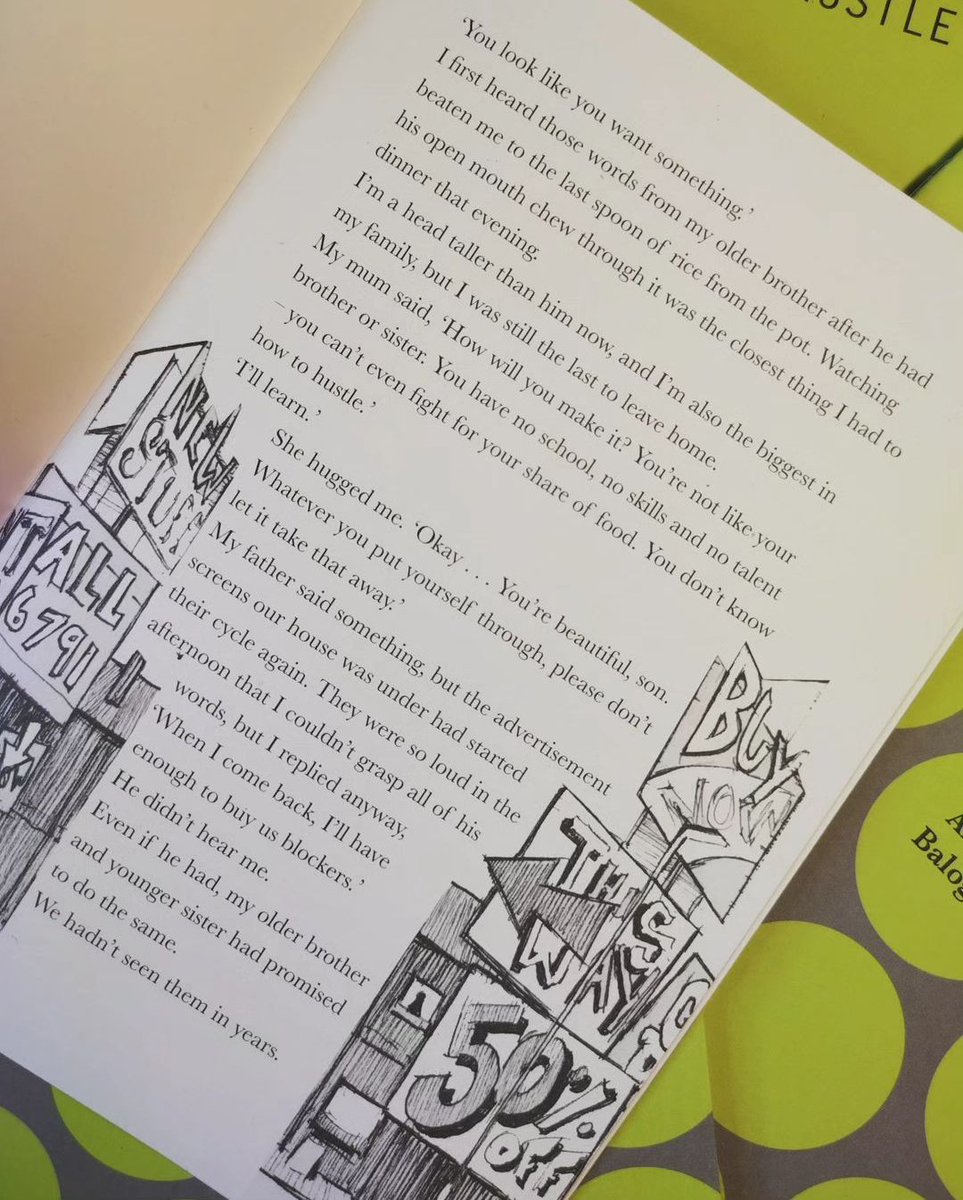 ‘You look like you want something.’
I first heard those words from my older brother after he had
beaten me to the last spoon of rice from the pot. Watching
his open mouth chew through it was the closest thing I had to
dinner that evening.
I’m a head taller than him now, and I’m also the biggest in
my family, but I was still the last to leave home.
My mum said, ‘How will you make it? You’re not like your
brother or sister. You have no school, no skills and no talent
– you can’t even fight for your share of food. You don’t know
how to hustle.’
‘I’ll learn.’
She hugged me. ‘Okay . . . You’re beautiful, son.
Whatever you put yourself through, please don’t
let it take that away.’
My father said something, but the advertisement
screens our house was under had started
their cycle again. They were so loud in the
afternoon that I couldn’t grasp all of his
words, but I replied anyway,
‘When I come back, I’ll have
enough to buy us blockers.’
He didn’t hear me.
Even if he had, my older brother
and younger sister had promised
to do the same.
We hadn’t seen them in years.
NEW
STUFF
ALL
6791
BUY
NOW
THIS
WAY
50%
OFF
USTLE
Balog